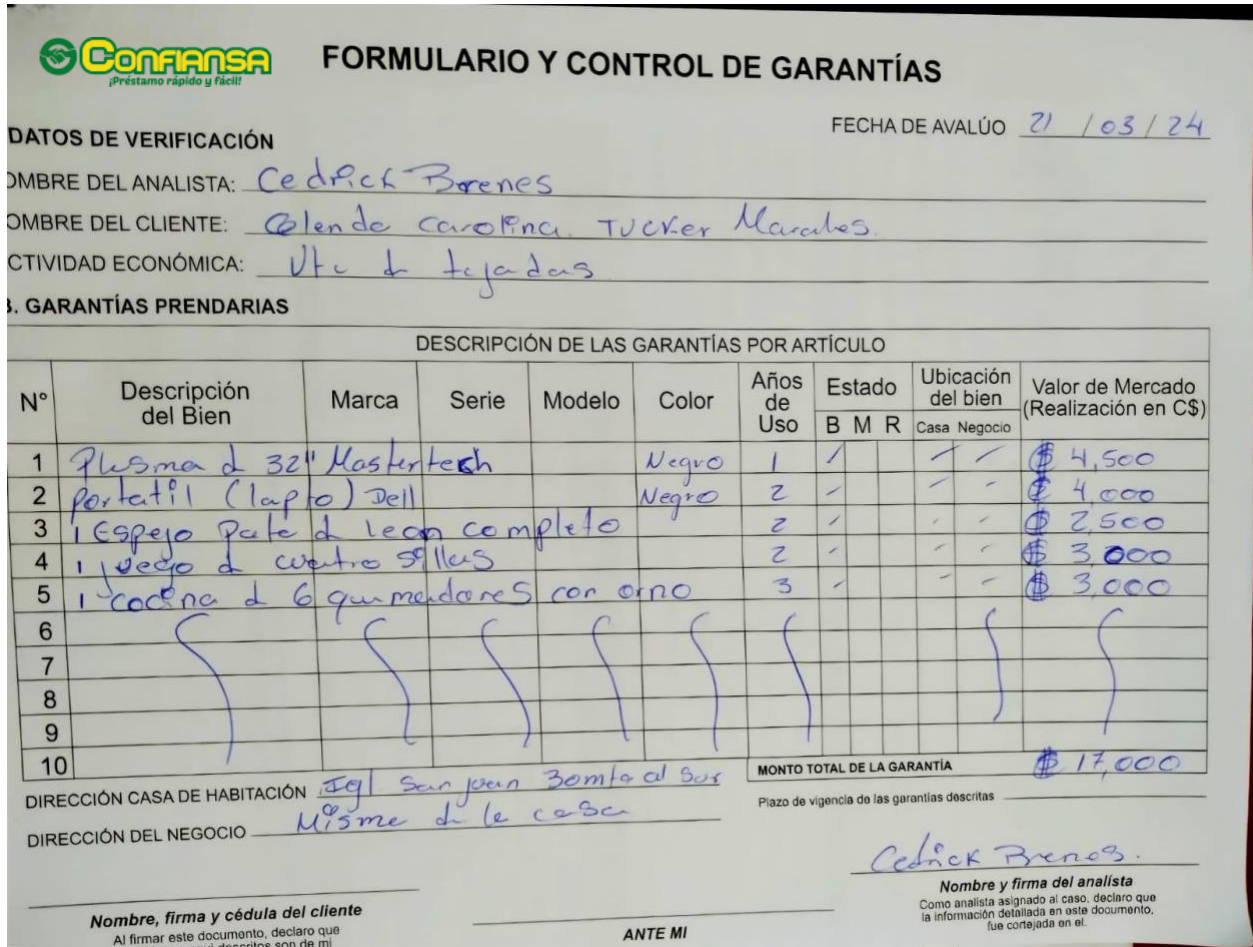 CONFIANSA
¡Préstamo rápido y fácil!
FORMULARIO Y CONTROL DE GARANTÍAS
FECHA DE AVALÚO 21 / 03 / 24
DATOS DE VERIFICACIÓN
OMBRE DEL ANALISTA: Cedrick Brenes
OMBRE DEL CLIENTE: Carolina Tucker Morales.
CTIVIDAD ECONÓMICA: Vta d tajadas
B. GARANTÍAS PRENDARIAS
DESCRIPCIÓN DE LAS GARANTÍAS POR ARTÍCULO
N° Descripción del Bien Marca Serie Modelo Color Años de Uso Estado B M R Ubicación del bien Casa Negocio Valor de Mercado (Realización en C$)
1 Plasma d 32" Mastertech Negro 1 / $ 4,500
2 portatil (lapto) Dell Negro 2 $ 4,000
3 1 Espejo Pata d leon completo 2 $ 2,500
4 1 juego d cuatro sillas 2 $ 3,000
5 1 cocina d 6 con orno 3 $ 3,000
6
7
8
9
10
MONTO TOTAL DE LA GARANTÍA $ 17,000
DIRECCIÓN CASA DE HABITACIÓN Igl San juan al Sur
Plazo de vigencia de las garantías descritas
DIRECCIÓN DEL NEGOCIO Misma d la casa
Cedrick Brenes.
Nombre y firma del analista
Como analista asignado al caso, declaro que
la información detallada en este documento,
fue cortejada en el.
Nombre, firma y cédula del cliente
Al firmar este documento, declaro que
descritos son de mi
ANTE MI